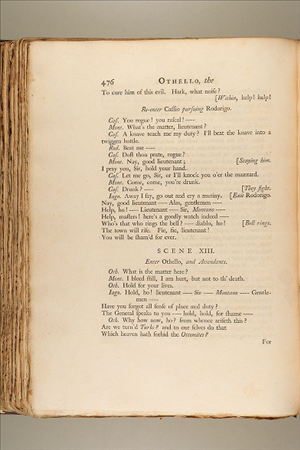 476 OTHELLO, the
To cure him of this evil. Hark, what noise?
[Within, help! help!
Re-enter Cassio pursuing Rodorigo.
Cas. You rogue! you rascal! —
Mont. What's the matter, lieutenant?
Cas. A knave teach me my duty? I'll beat the knave into a
twiggen bottle.
Rod. Beat me —
Cas. Dost thou prate, rogue?
Mont. Nay, good lieutenant; [Staying him.
I pray you, Sir, hold your hand.
Cas. Let me go, Sir, or I'll knock you o'er the mazzard.
Mont. Come, come, you're drunk.
Cas. Drunk? — [They fight.
Iago. Away I say, go out and cry a mutiny. [Exit Rodorigo.
Nay, good lieutenant — Alas, gentlemen —
Help, ho! — Lieutenant — Sir, Montano —
Help, masters! here's a goodly watch indeed —
Who's that who rings the bell? — diablo, ho! [Bell rings.
The town will rise. Fie, fie, lieutenant!
You will be sham'd for ever.
SCENE XIII.
Enter Othello, and Attendants.
Oth. What is the matter here?
Mont. I bleed still, I am hurt, but not to th' death.
Oth. Hold for your lives.
Iago. Hold, ho! lieutenant — Sir — Montano — Gentle-
men —
Have you forgot all sense of place and duty?
The General speaks to you — hold, hold, for shame —
Oth. Why how now, ho? from whence ariseth this?
Are we turn'd Turks? and to our selves do that
Which heaven hath forbid the Ottomites?
For